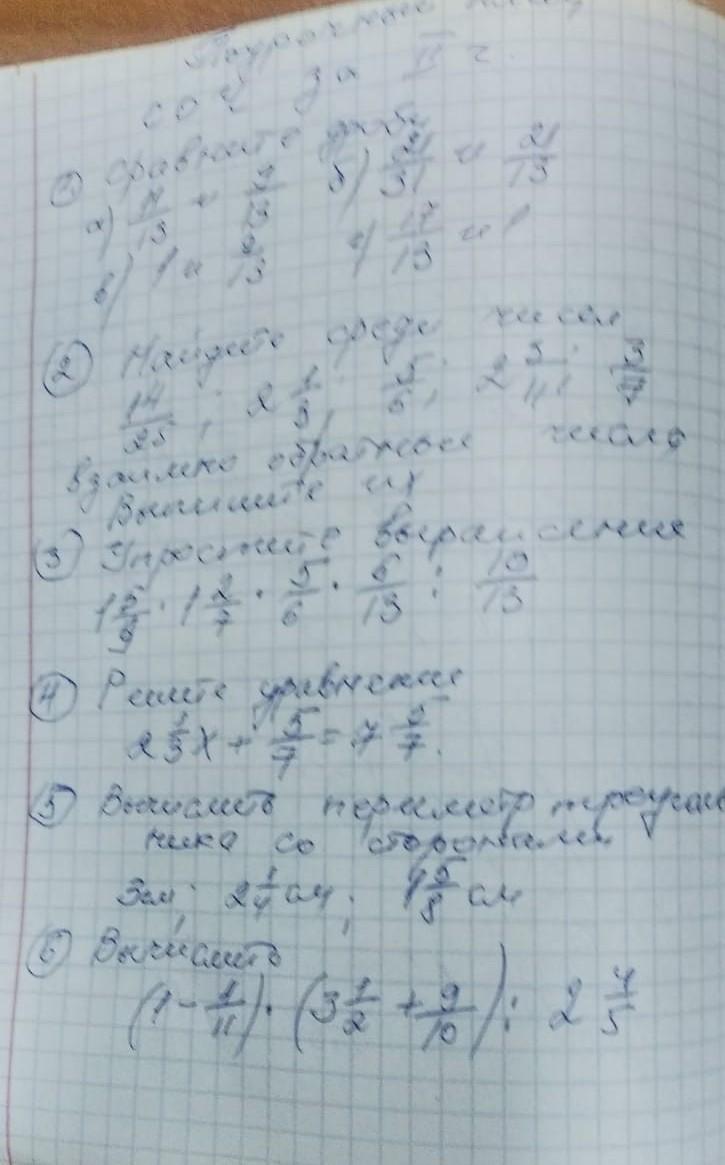 Поурочные
СОЧ за II ч.
① Сравните дроби
а) 11/13 и 7/13 б) 21/31 и 21/13
в) 1 и 9/13 г) 17/13 и 1
② Найдите среди чисел
14/25; 2 1/3; 5/6; 2 3/11; 3/7
взаимно обратные числа
Выпишите их
③ Упростите выражение
1 5/9 · 1 2/7 · 5/6 · 6/13 : 10/13
④ Решите уравнение
2 1/3 x + 5/7 = 7 5/7.
⑤ Вычислить периметр треуголь
ника со сторонами
3см; 2 1/4 см; 1 5/8 см
⑥ Вычислить
(1 - 1/11) · (3 1/2 + 9/10) : 2 4/5